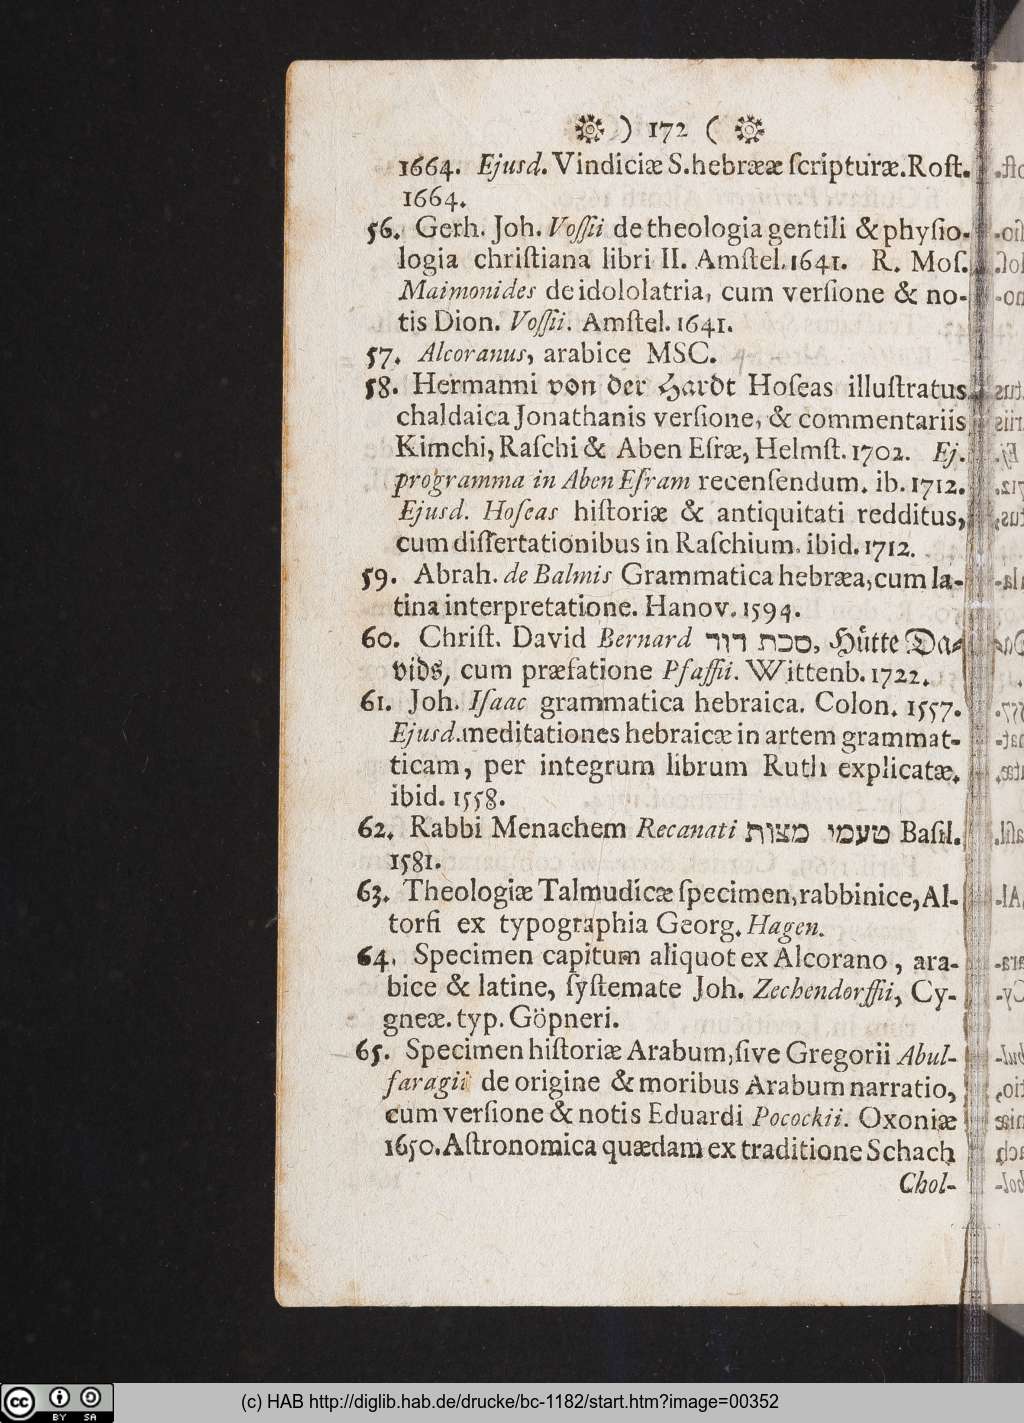 ) 172 (
1664. Ejusd. Vindiciæ S. hebrææ ſcripturæ. Roſt.
1664.
56. Gerh. Joh. Voſſii de theologia gentili & phyſio-
logia chriſtiana libri II. Amſtel. 1641. R. Moſ.
Maimonides de idololatria, cum verſione & no-
tis Dion. Voſſii. Amſtel. 1641.
57. Alcoranus, arabice MSC.
58. Hermanni von der Hardt Hoſeas illuſtratus
chaldaica Jonathanis verſione, & commentariis
Kimchi, Raſchi & Aben Eſræ, Helmſt. 1702. Ej.
programma in Aben Eſram recenſendum. ib. 1712.
Ejusd. Hoſeas hiſtoriæ & antiquitati redditus,
cum diſſertationibus in Raſchium. ibid. 1712.
59. Abrah. de Balmis Grammatica hebræa, cum la-
tina interpretatione. Hanov. 1594.
60. Chriſt. David Bernard סכת דוד, Hütte Da-
vids, cum præfatione Pfaffii. Wittenb. 1722.
61. Joh. Iſaac grammatica hebraica. Colon. 1557.
Ejusd. meditationes hebraicæ in artem grammat-
ticam, per integrum librum Ruth explicatæ.
ibid. 1558.
62. Rabbi Menachem Recanati טעמי מצות Baſil.
1581.
63. Theologiæ Talmudicæ ſpecimen, rabbinice, Al-
torfi ex typographia Georg. Hagen.
64. Specimen capitum aliquot ex Alcorano, ara-
bice & latine, ſyſtemate Joh. Zechendorffii, Cy-
gneæ. typ. Göpneri.
65. Specimen hiſtoriæ Arabum, ſive Gregorii Abul-
faragii de origine & moribus Arabum narratio,
cum verſione & notis Eduardi Pocockii. Oxoniæ
1650. Aſtronomica quædam ex traditione Schach
Chol-
(c) HAB http://diglib.hab.de/drucke/bc-1182/start.htm?image=00352
cc BY SA